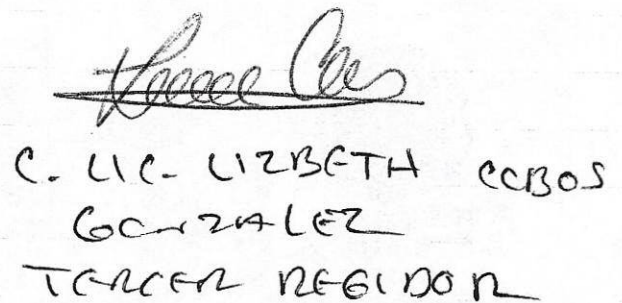 C. LIC. LIZBETH CEBOS
GONZALEZ
TERCER REGIDOR